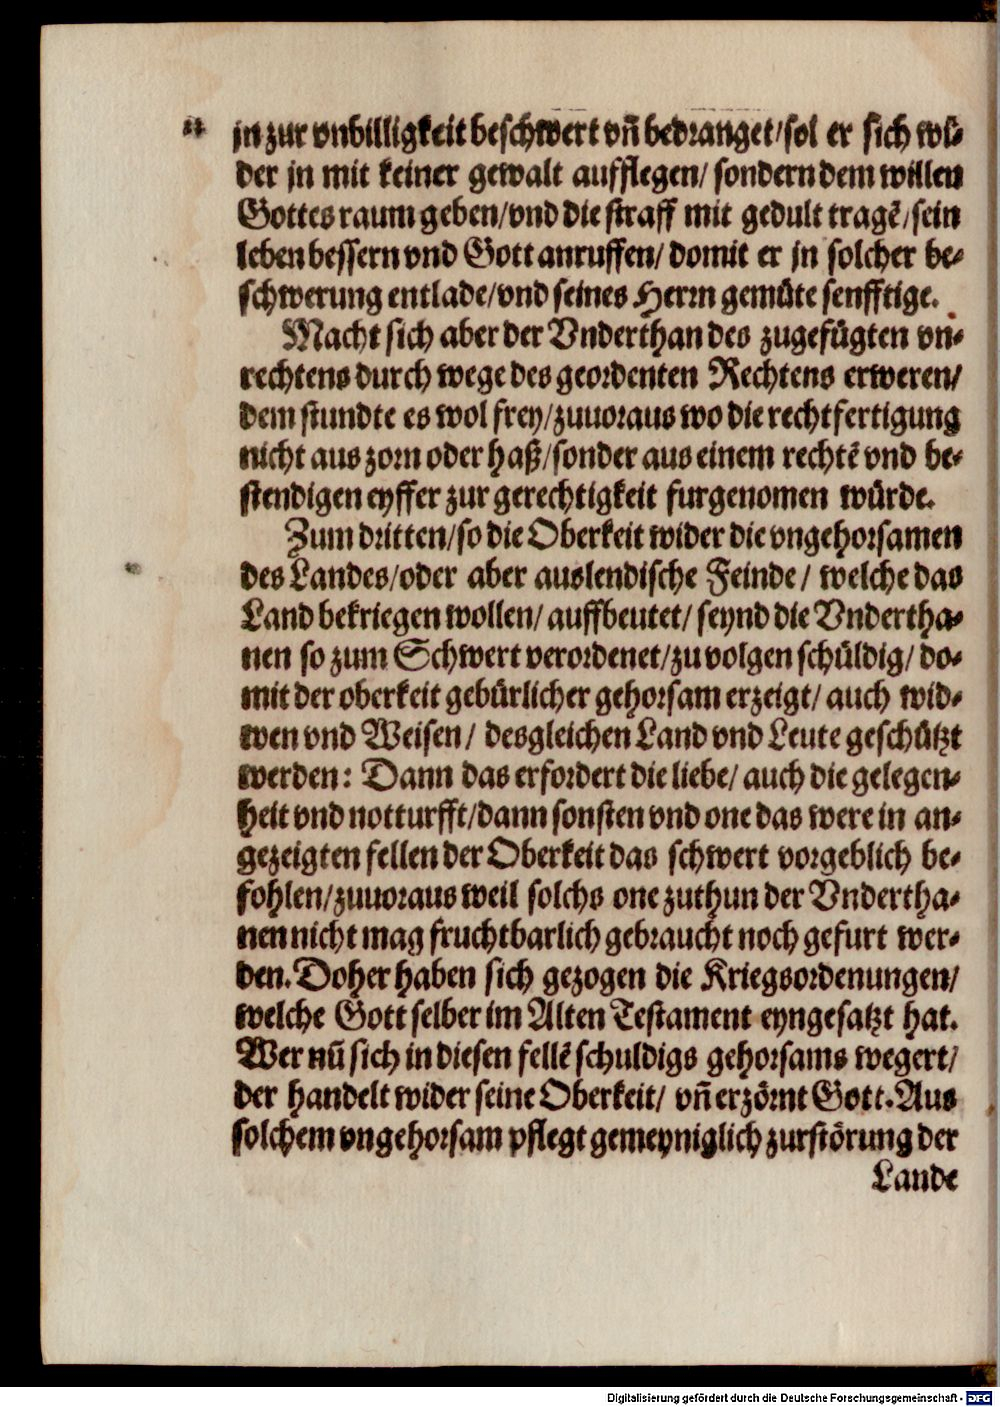 jn zur vnbilligkeit beschwert vñ bedranget/sol er sich wi-
der jn mit keiner gewalt aufflegen/ sondern dem willen
Gottes raum geben/vnd die straff mit gedult tragē/sein
leben bessern vnd Gott anruffen/ domit er jn solcher be-
schwerung entlade/vnd seines Herrn gemüte senfftige.
Macht sich aber der Vnderthan des zugefügten vn-
rechtens durch wege des geordenten Rechtens erweren/
dem stundte es wol frey/zuuoraus wo die rechtfertigung
nicht aus zorn oder haß/sonder aus einem rechtē vnd be-
stendigen eyffer zur gerechtigkeit furgenomen würde.
Zum dritten/so die Oberkeit wider die vngehorsamen
des Landes/oder aber auslendische Feinde/ welche das
Land bekriegen wollen/ auffbeutet/ seynd die Vndertha-
nen so zum Schwert verordenet/zu volgen schüldig/ do-
mit der oberkeit gebürlicher gehorsam erzeigt/ auch wid-
wen vnd Weisen/ desgleichen Land vnd Leute geschützt
werden: Dann das erfordert die liebe/ auch die gelegen-
heit vnd notturfft/dann sonsten vnd one das were in an-
gezeigten fellen der Oberkeit das schwert vorgeblich be-
fohlen/zuuoraus weil solchs one zuthun der Vndertha-
nen nicht mag fruchtbarlich gebraucht noch gefurt wer-
den. Doher haben sich gezogen die Kriegsordenungen/
welche Gott selber im Alten Testament eyngesatzt hat.
Wer nū sich in diesen fellē schuldigs gehorsams wegert/
der handelt wider seine Oberkeit/ vñ erzörnt Gott. Aus
solchem vngehorsam pflegt gemeyniglich zurstörung der
Lande
Digitalisierung gefördert durch die Deutsche Forschungsgemeinschaft - DFG